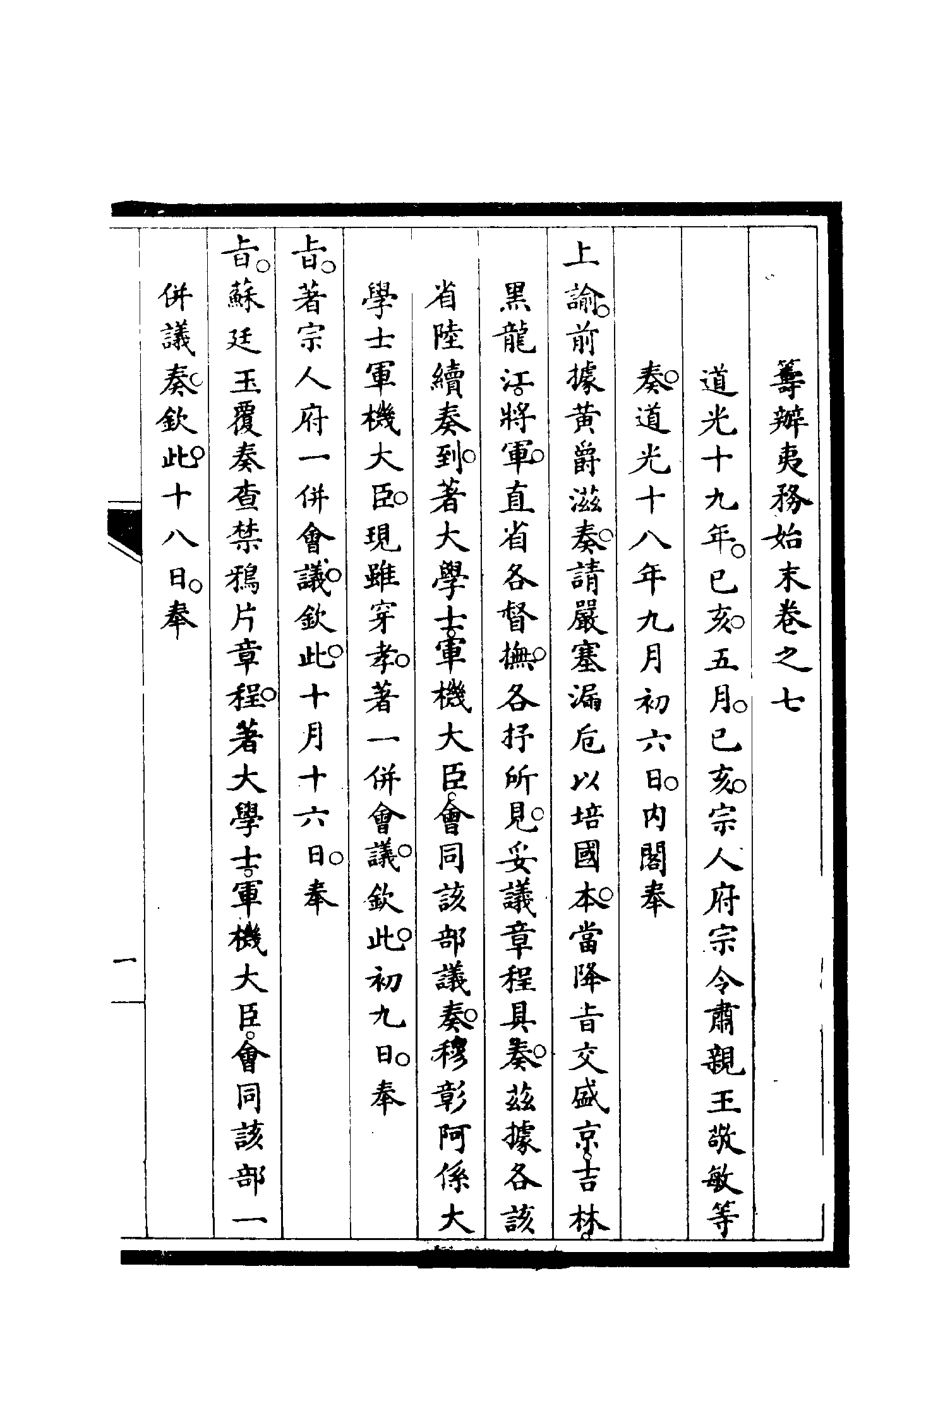 籌辦夷務始末卷之七
道光十九年。己亥。五月。己亥。宗人府宗令肅親王敬敏等
奏。道光十八年九月初六日。內閣奉
上諭。前據黃爵滋奏。請嚴塞漏卮以培國本。當降旨交盛京。吉林。
黑龍江。將軍。直省各督撫。各抒所見。妥議章程具奏。茲據各該
省陸續奏到。著大學士。軍機大臣。會同該部議奏。穆彰阿係大
學士軍機大臣。現雖穿孝。著一併會議。欽此。初九日。奉
旨。著宗人府一併會議。欽此。十月十六日。奉
旨。蘇廷玉覆奏查禁鴉片章程。著大學士。軍機大臣。會同該部一
併議奏。欽此。十八日。奉
一